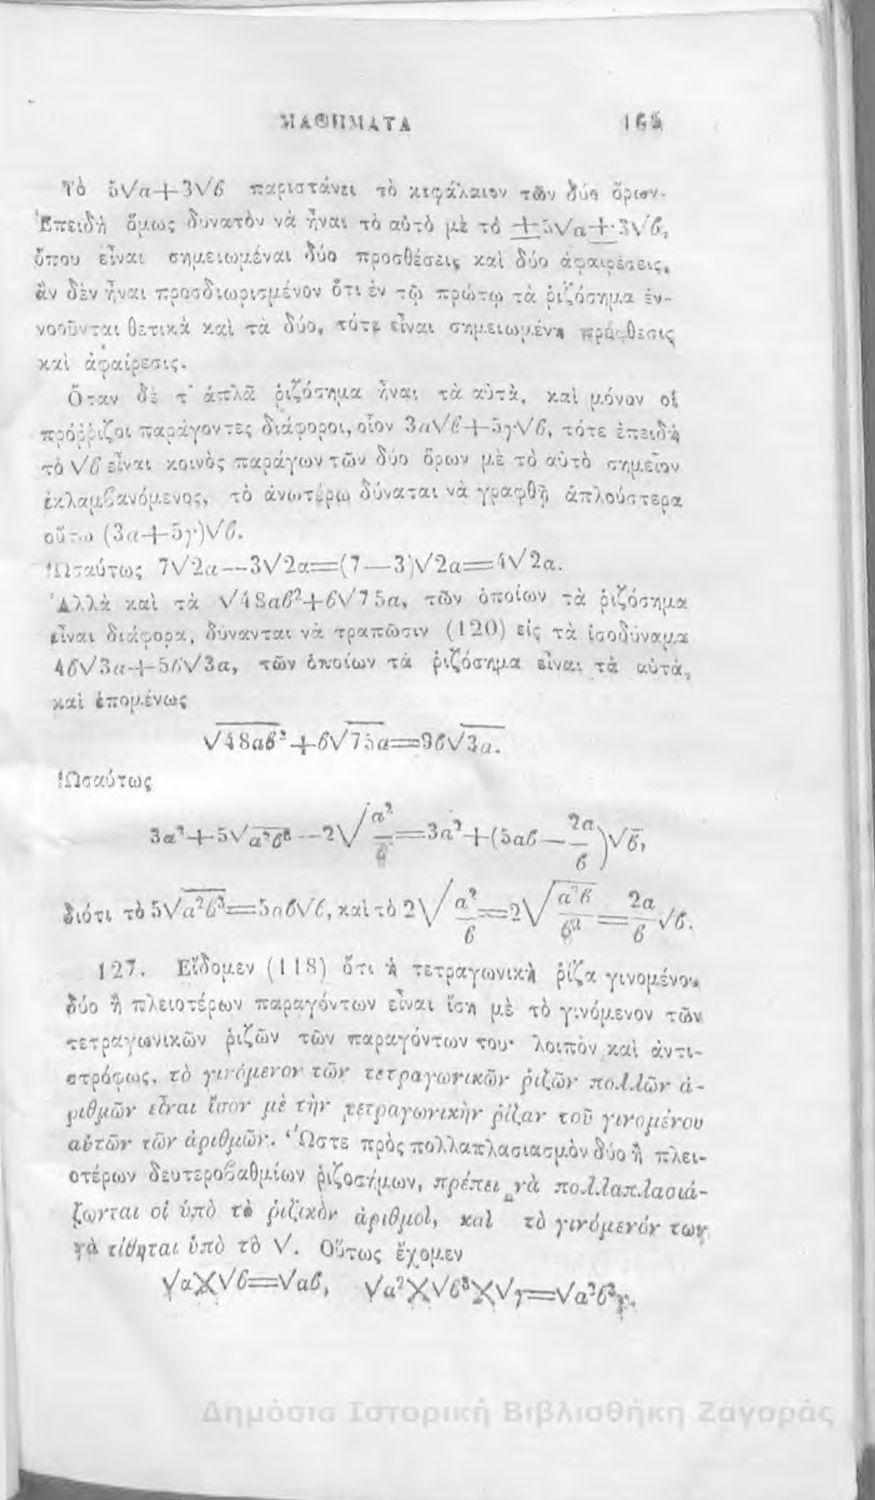 ΜΑΘΗΜΑΤΑ 165
Τὸ 5√α+3√ϐ παριστάνει τὸ κεφάλαιον τῶν δύο ὅρων.
Ἐπειδὴ ὅμως δυνατὸν νὰ ἦναι τὸ αὐτὸ μὲ τὸ ±5√α±3√ϐ,
ὅπου εἶναι σημειωμέναι δύο προσθέσεις καὶ δύο ἀφαιρέσεις,
ἂν δὲν ἦναι προσδιωρισμένον ὅτι ἐν τῷ πρώτῳ τὰ ῥιζόσημα ἐν-
νοοῦνται θετικὰ καὶ τὰ δύο, τότε εἶναι σημειωμένη πρόσθεσις
καὶ ἀφαίρεσις.
Ὅταν δὲ τ' ἁπλᾶ ῥιζόσημα ἦναι τὰ αὐτὰ, καὶ μόνον οἱ
πρόῤῥιζοι παράγοντες διάφοροι, οἷον 3α√ϐ+5γ√ϐ, τότε ἐπειδὴ
τὸ √ϐ εἶναι κοινὸς παράγων τῶν δύο ὅρων μὲ τὸ αὐτὸ σημεῖον
ἐκλαμϐανόμενος, τὸ ἀνωτέρω δύναται νὰ γραφθῇ ἁπλούστερα
οὕτω (3α+5γ)√ϐ.
Ὡσαύτως 7√2α—3√2α=(7—3)√2α=4√2α.
Ἀλλὰ καὶ τὰ √48αϐ²+ϐ√75α, τῶν ὁποίων τὰ ῥιζόσημα
εἶναι διάφορα, δύνανται νὰ τραπῶσιν (120) εἰς τὰ ἰσοδύναμα
4ϐ√3α+5ϐ√3α, τῶν ὁποίων τὰ ῥιζόσημα εἶναι τὰ αὐτὰ,
καὶ ἑπομένως
√48αϐ²+ϐ√75α=9ϐ√3α.
Ὡσαύτως
3α²+5√α²ϐ³—2√α²/ϐ=3α²+(5αϐ—2α/ϐ)√ϐ,
διότι τὸ 5√α²ϐ³=5αϐ√ϐ, καὶ τὸ 2√α²/ϐ=2√α²ϐ/ϐ²=2α/ϐ√ϐ.
127. Εἴδομεν (118) ὅτι ἡ τετραγωνικὴ ῥίζα γινομένου
δύο ἢ πλειοτέρων παραγόντων εἶναι ἴση μὲ τὸ γινόμενον τῶν
τετραγωνικῶν ῥιζῶν τῶν παραγόντων του· λοιπὸν καὶ ἀντι-
στρόφως, τὸ γινόμενον τῶν τετραγωνικῶν ῥιζῶν πολλῶν ἀ-
ριθμῶν εἶναι ἴσον μὲ τὴν τετραγωνικὴν ῥίζαν τοῦ γινομένου
αὐτῶν τῶν ἀριθμῶν. Ὥστε πρὸς πολλαπλασιασμὸν δύο ἢ πλει-
οτέρων δευτεροϐαθμίων ῥιζοσήμων, πρέπει νὰ πολλαπλασιά-
ζωνται οἱ ὑπὸ τὸ ῥιζικὸν ἀριθμοὶ, καὶ τὸ γινόμενόν των
νὰ τίθηται ὑπὸ τὸ √. Οὕτως ἔχομεν
√α×√ϐ=√αϐ, √α²×√ϐ³×√γ=√α²ϐ³γ.
Δημόσια Ιστορική Βιβλιοθήκη Ζαγοράς